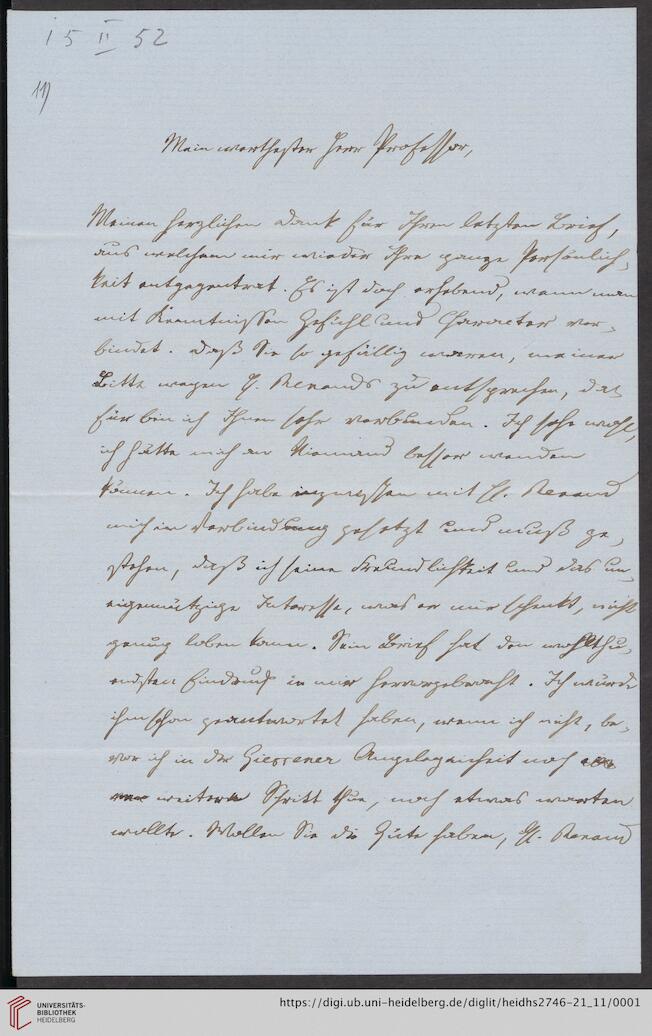 15 II 52
11)
Mein werthester Herr Professor,
Meinen herzlichen Dank für Ihren letzten Brief,
aus welchem mir wieder Ihre ganze Persönlich-
keit entgegentrat. Es ist doch erhebend, wenn man
mit Kenntnissen Gefühl und Character ver-
bindet. Daß Sie so gefällig waren, meiner
Bitte wegen H. Renauds zu entsprechen, da-
für bin ich Ihnen sehr verbunden. Ich sehe wohl,
ich hätte mich an Niemand besser wenden
können. Ich habe inzwischen mit H. Renaud
mich in Verbindung gesetzt und muß ge-
stehen, daß ich seine Freundlichkeit und das un-
eigennützige Interesse, was er mir schenkt, nicht
genug loben kann. Sein Brief hat den wohlthu-
endsten Eindruck in mir hervorgebracht. Ich würde
ihm schon geantwortet haben, wenn ich nicht, be-
vor ich in der Giessener Angelegenheit noch
weitere Schritt thue, noch etwas warten
wollte. Wollen Sie die Güte haben, H. Renaud
UNIVERSITÄTS-
BIBLIOTHEK
HEIDELBERG
https://digi.ub.uni-heidelberg.de/diglit/heidhs2746-21_11/0001